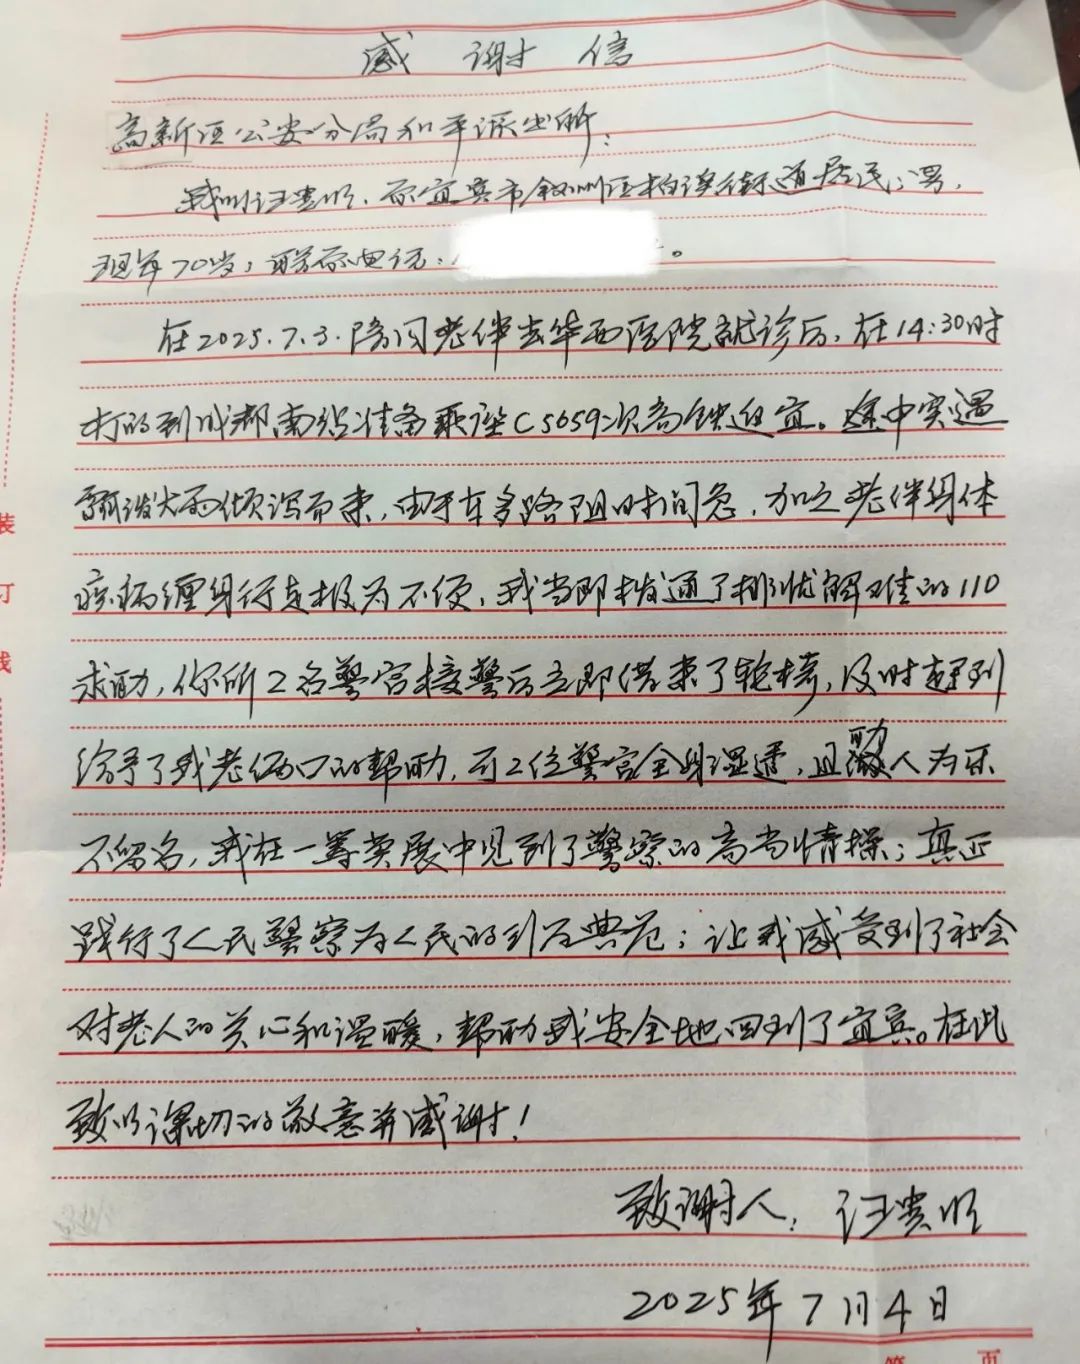 感 谢 信
高新区公安分局和平派出所：
我叫汪贵明，系宜宾市叙州区柏溪街道居民，男，
现年70岁，联系电话：。
在2025.7.3.陪同老伴去华西医院就诊后，在14:30时
打的到成都南站准备乘座C5659次高铁返宜。途中突遇
瓢泼大雨倾泻而来，由于车多路阻时间急，加之老伴身体
疾病缠身行走极为不便，我当即拨通了排忧解难的110
求助，你所2名警官接警后立即借来了轮椅，及时赶到
给予了我老俩口的帮助，可2位警官全身湿透，且助人为乐
不留名，我在一筹莫展中见到了警察的高尚情操；真正
践行了人民警察为人民的到位典范；让我感受到了社会
对老人的关心和温暖，帮助我安全地回到了宜宾。在此
致以深切的敬意并感谢！
致谢人：汪贵明
2025年7月4日
装
订
线
第 页